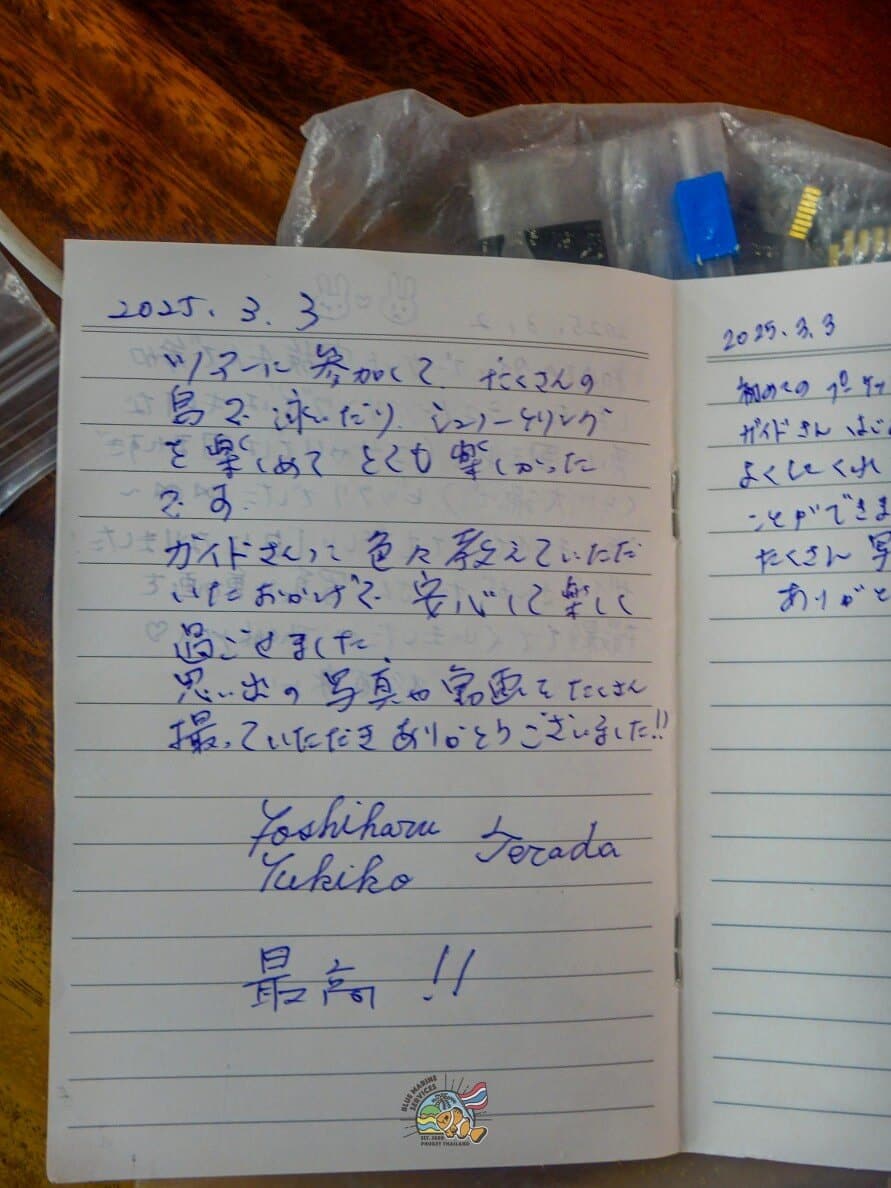 2025. 3. 3
ツアーに参加して、たくさんの
島で泳いだり、シュノーケリング
を楽しめてとても楽しかった
です。
ガイドさんに色々教えていただ
いたおかげで安心して楽しく
過ごせました。
思い出の写真や動画をたくさん
撮っていただきありがとうございました!!
Yoshiharu
Yukiko
Terada
最高!!
2025. 3. 3
初めての
ガイドさん
よくしてくれ
ことができま
たくさん写
ありがと
BLUE MARINE
SERVICES
EST. 2020
PHUKET THAILAND